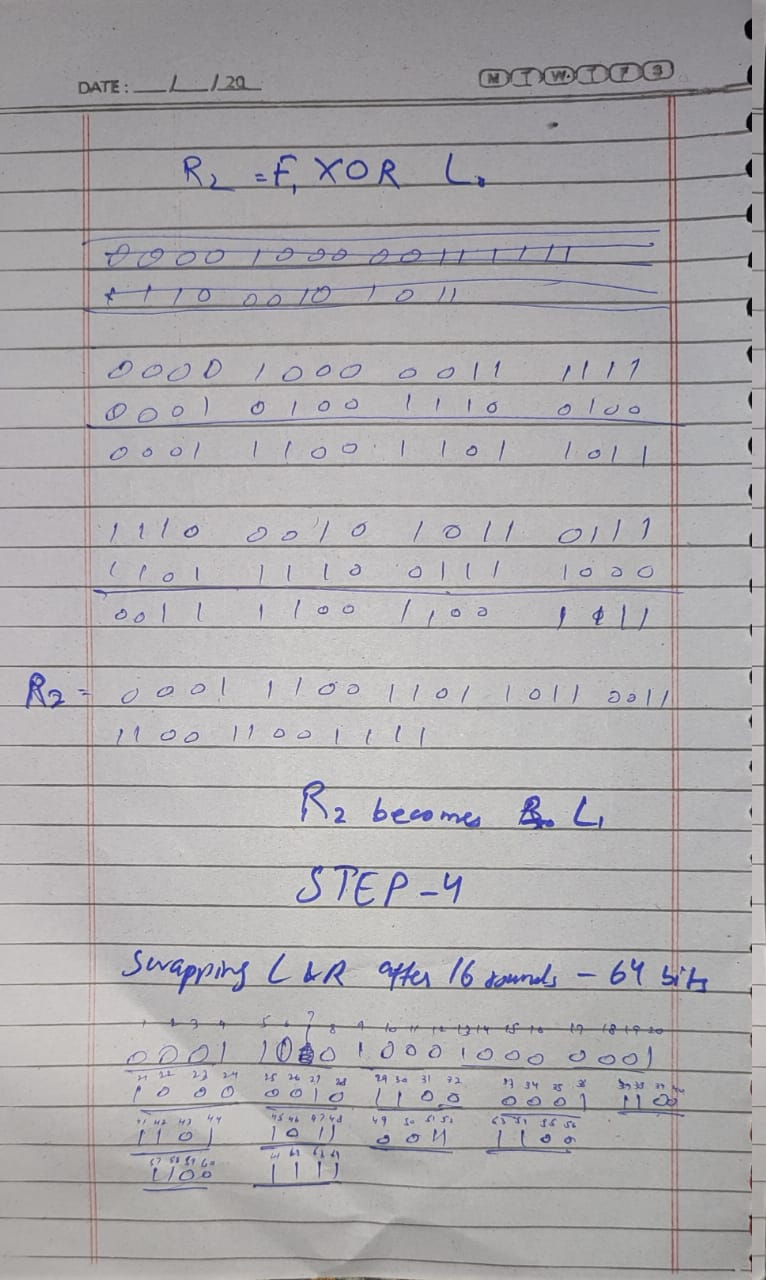 DATE: __/__/20__ M T W T F S
R2 = F1 XOR L0
0000 1000 0011 1111
1110 0010 1011
0000 1000 0011 1111
0001 0100 1110 0100
0001 1100 1101 1011
1110 0010 1011 0111
1101 1110 0111 1000
0011 1100 1100 1111
R2 = 0001 1100 1101 1011 0011
1100 1100 1111
R2 becomes L1
STEP-4
Swapping L & R after 16 rounds - 64 bits
1 2 3 4 5 6 7 8 9 10 11 12 13 14 15 16 17 18 19 20
0001 1000 1000 1000 0001
21 22 23 24 25 26 27 28 29 30 31 32 33 34 35 36 37 38 39 40
1000 0010 1100 0001 1100
41 42 43 44 45 46 47 48 49 50 51 52 53 54 55 56
1101 1011 0011 1100
57 58 59 60 61 62 63 64
1100 1111